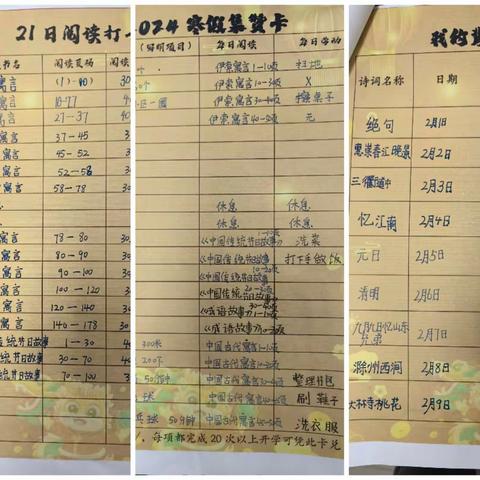 21日阅读打
书名 阅读页码 阅读
寓言 (1)-10) 30
寓言 10-17
寓言 27-37 40
寓言 37-45 3
寓言 45-52 3
寓言 52-58 3
寓言 58-78 3
寓言 78-80 30
寓言 80-90
寓言 90-100
寓言 100-120
寓言 120-140
寓言 140-178 30
统节日故事 1-30
统节日故事 30-70 40
统节日故事 70-100
2024寒假集赞卡
(写明项目) 每日阅读 每日劳动
伊索寓言1-10页 扫地
伊索寓言10-30页 X
伊索寓言30-40页 擦桌子
伊索寓言40-50页 元
休息 休息
休息 休息
《中国传统节日故事》 洗菜
《中国传统节日故事》 打下手做饭
《中国传统节日故事》
《中国传统节日故事》
《成语故事》
300米 中国古代寓言
200下 中国古代寓言
50分钟 中国古代寓言 整理书包
球 中国古代寓言 刷鞋子
兵球 50分钟 中国古代寓言 洗衣服
每项都完成20次以上开学可凭此卡兑
我的
诗词名称 日期
绝句 2月1日
惠崇春江晚景 2月2日
三衢道中 2月3日
忆江南 2月4日
元日 2月5日
清明 2月6日
九月九日忆山东兄弟 2月7日
滁州西涧 2月8日
大林寺桃花 2月9日